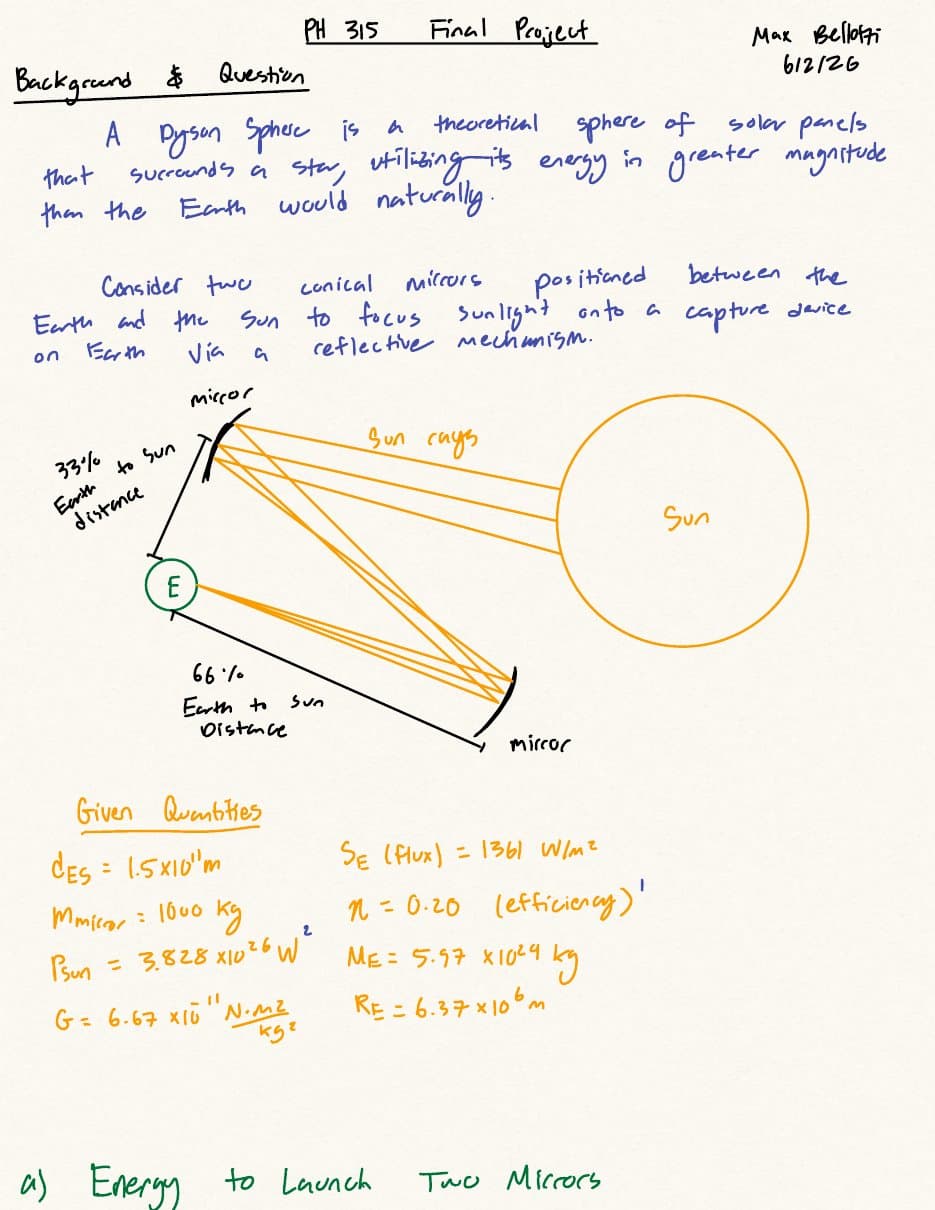 PH 315 Final Project
Max Bellotti
6/2/26
Background & Question
A Dyson Sphere is a theoretical sphere of solar panels
that surrounds a star, utilizing its energy in greater magnitude
than the Earth would naturally.
Consider two conical mirrors positioned between the
Earth and the Sun to focus sunlight onto a capture device
on Earth via a reflective mechanism.
mirror
33%
Earth to Sun
distance
Sun rays
Sun
E
66%
Earth to Sun
Distance
mirror
Given Quantities
dES = 1.5x10¹¹m
SE (flux) = 1361 W/m²
Mmirror = 1000 kg
η = 0.20 (efficiency)¹
Psun = 3.828 x10²⁶ W²
ME = 5.97 x10²⁴ kg
G = 6.67 x10⁻¹¹ N·m²/kg²
RE = 6.37 x 10⁶ m
a) Energy to Launch Two Mirrors